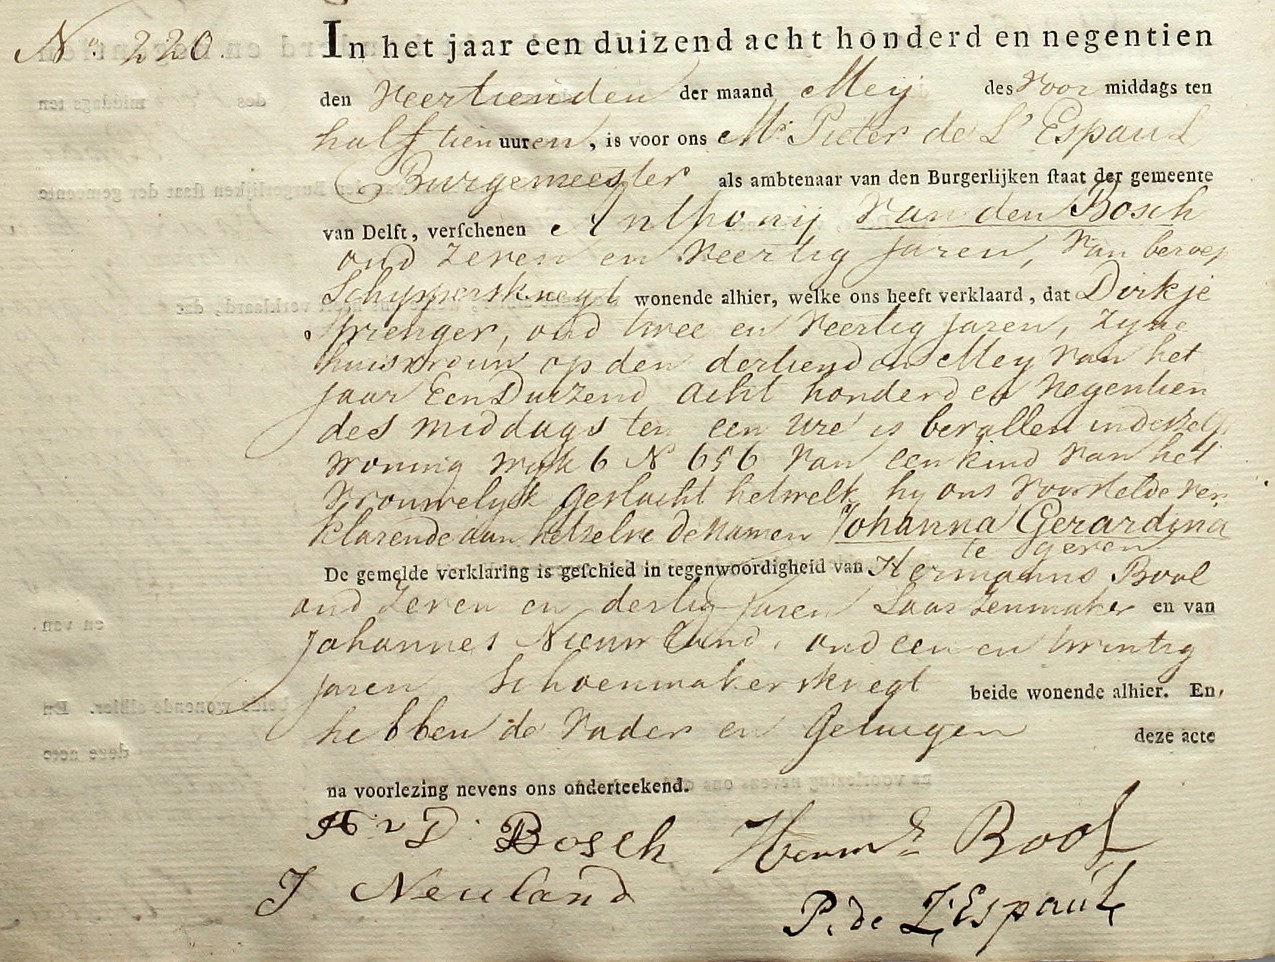 No. 220.
In het jaar een duizend acht honderd en negentien
den Veertienden der maand Meij des voor middags ten
half tien uuren, is voor ons Mr. Pieter de L'Espaul
Burgemeester als ambtenaar van den Burgerlijken ſtaat der gemeente
van Delft, verſchenen Anthonij van den Bosch
oud Zeven en veertig Jaren, van beroep
Schippersknegt wonende alhier, welke ons heeft verklaard, dat Dirkje
Sprenger, oud twee en veertig Jaren, zyne
huisvrouw op den dertienden Mey van het
jaar Een Duizend acht honderd en Negentien
des middags ten een ure is bevallen in deszelfs
woning wyk 6 N 656 van een kind van het
vrouwelyk geslacht hetwelk hy ons voorstelde ver
klarende aan hetzelve de Namen Johanna Gerardina
te geven
De gemelde verklaring is geſchied in tegenwoordigheid van Hermanus Bool
oud Zeven en dertig Jaren Laarzenmaker en van
Johannes Nieuwland, oud een en twintig
jaren Schoenmakersknegt beide wonende alhier. En,
hebben de Vader en Getuigen deze acte
na voorlezing nevens ons onderteekend.
A v D Bosch Herms Bool
J Neuland
P. de L'Espaul